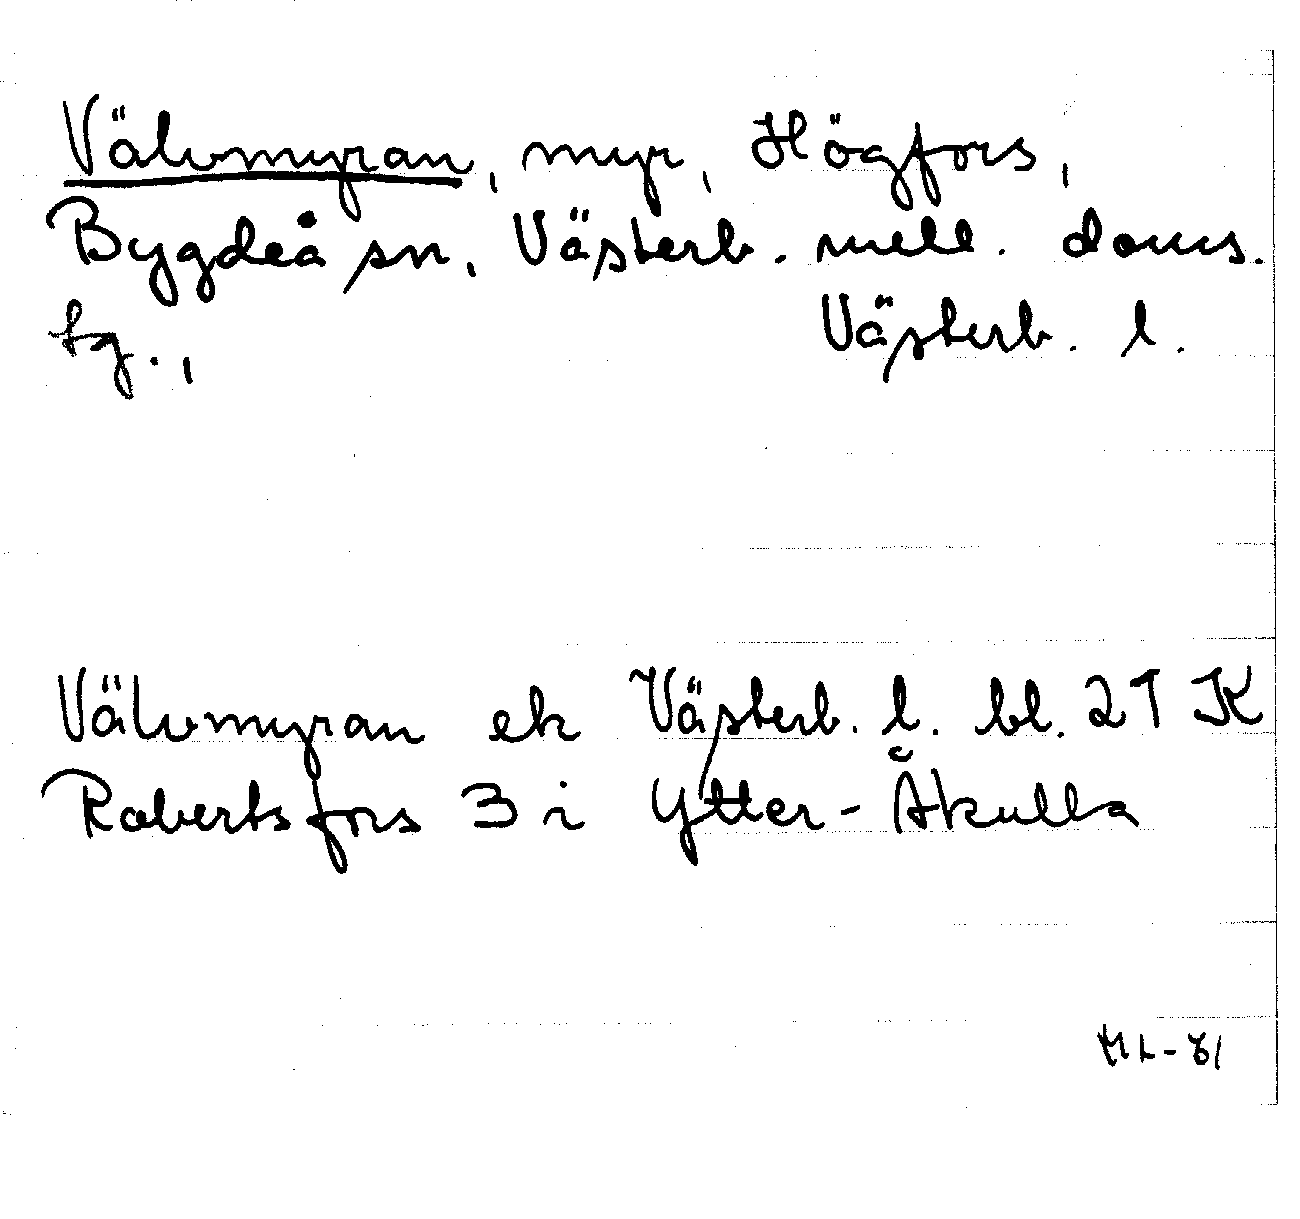 Välvmyran, myr, Högfors,
Bygdeå sn, Västerb. mell. doms.
tg., Västerb. l.
Välvmyran ek Västerb. l. bl. 21 K
Robertsfors 3 i Ytter-Åkulla
ML-81